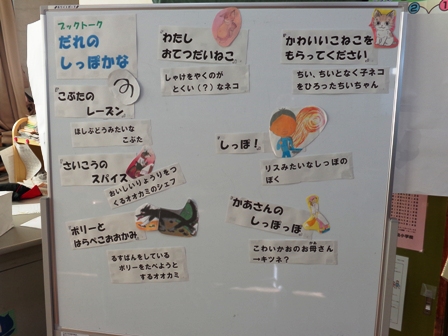 ブックトーク
だれの
しっぽかな
『わたし
おてつだいねこ』
しゃけをやくのが
とくい（？）なネコ
『かわいいこねこを
もらってください』
ちい、ちいとなく子ネコ
をひろったちいちゃん
『こぶたの
レーズン』
ほしぶどうみたいな
こぶた
『しっぽ！』
リスみたいなしっぽの
ぼく
『さいこうの
スパイス』
おいしいりょうりをつ
くるオオカミのシェフ
『かあさんの
しっぽっぽ』
こわいかおのお母さん
→キツネ？
『ポリーと
はらぺこおおかみ』
るすばんをしている
ポリーをたべようと
するオオカミ
②
①